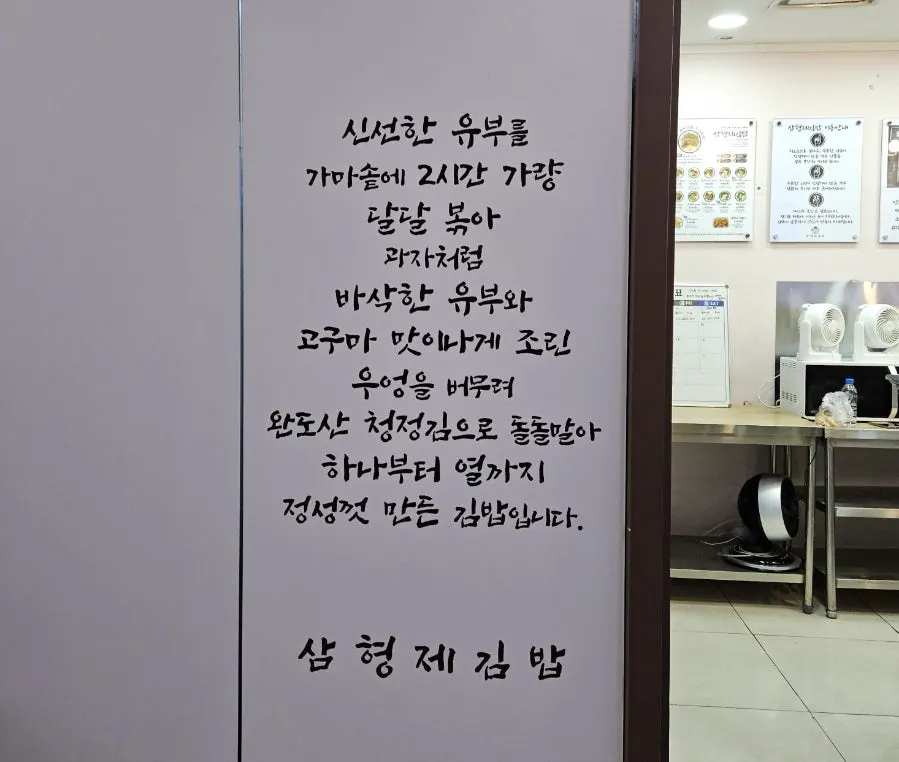 신선한 유부를
가마솥에 2시간 가량
달달 볶아
과자처럼
바삭한 유부와
고구마 맛이나게 조린
우엉을 버무려
완도산 청정김으로 돌돌말아
하나부터 열까지
정성껏 만든 김밥입니다.
삼형제김밥